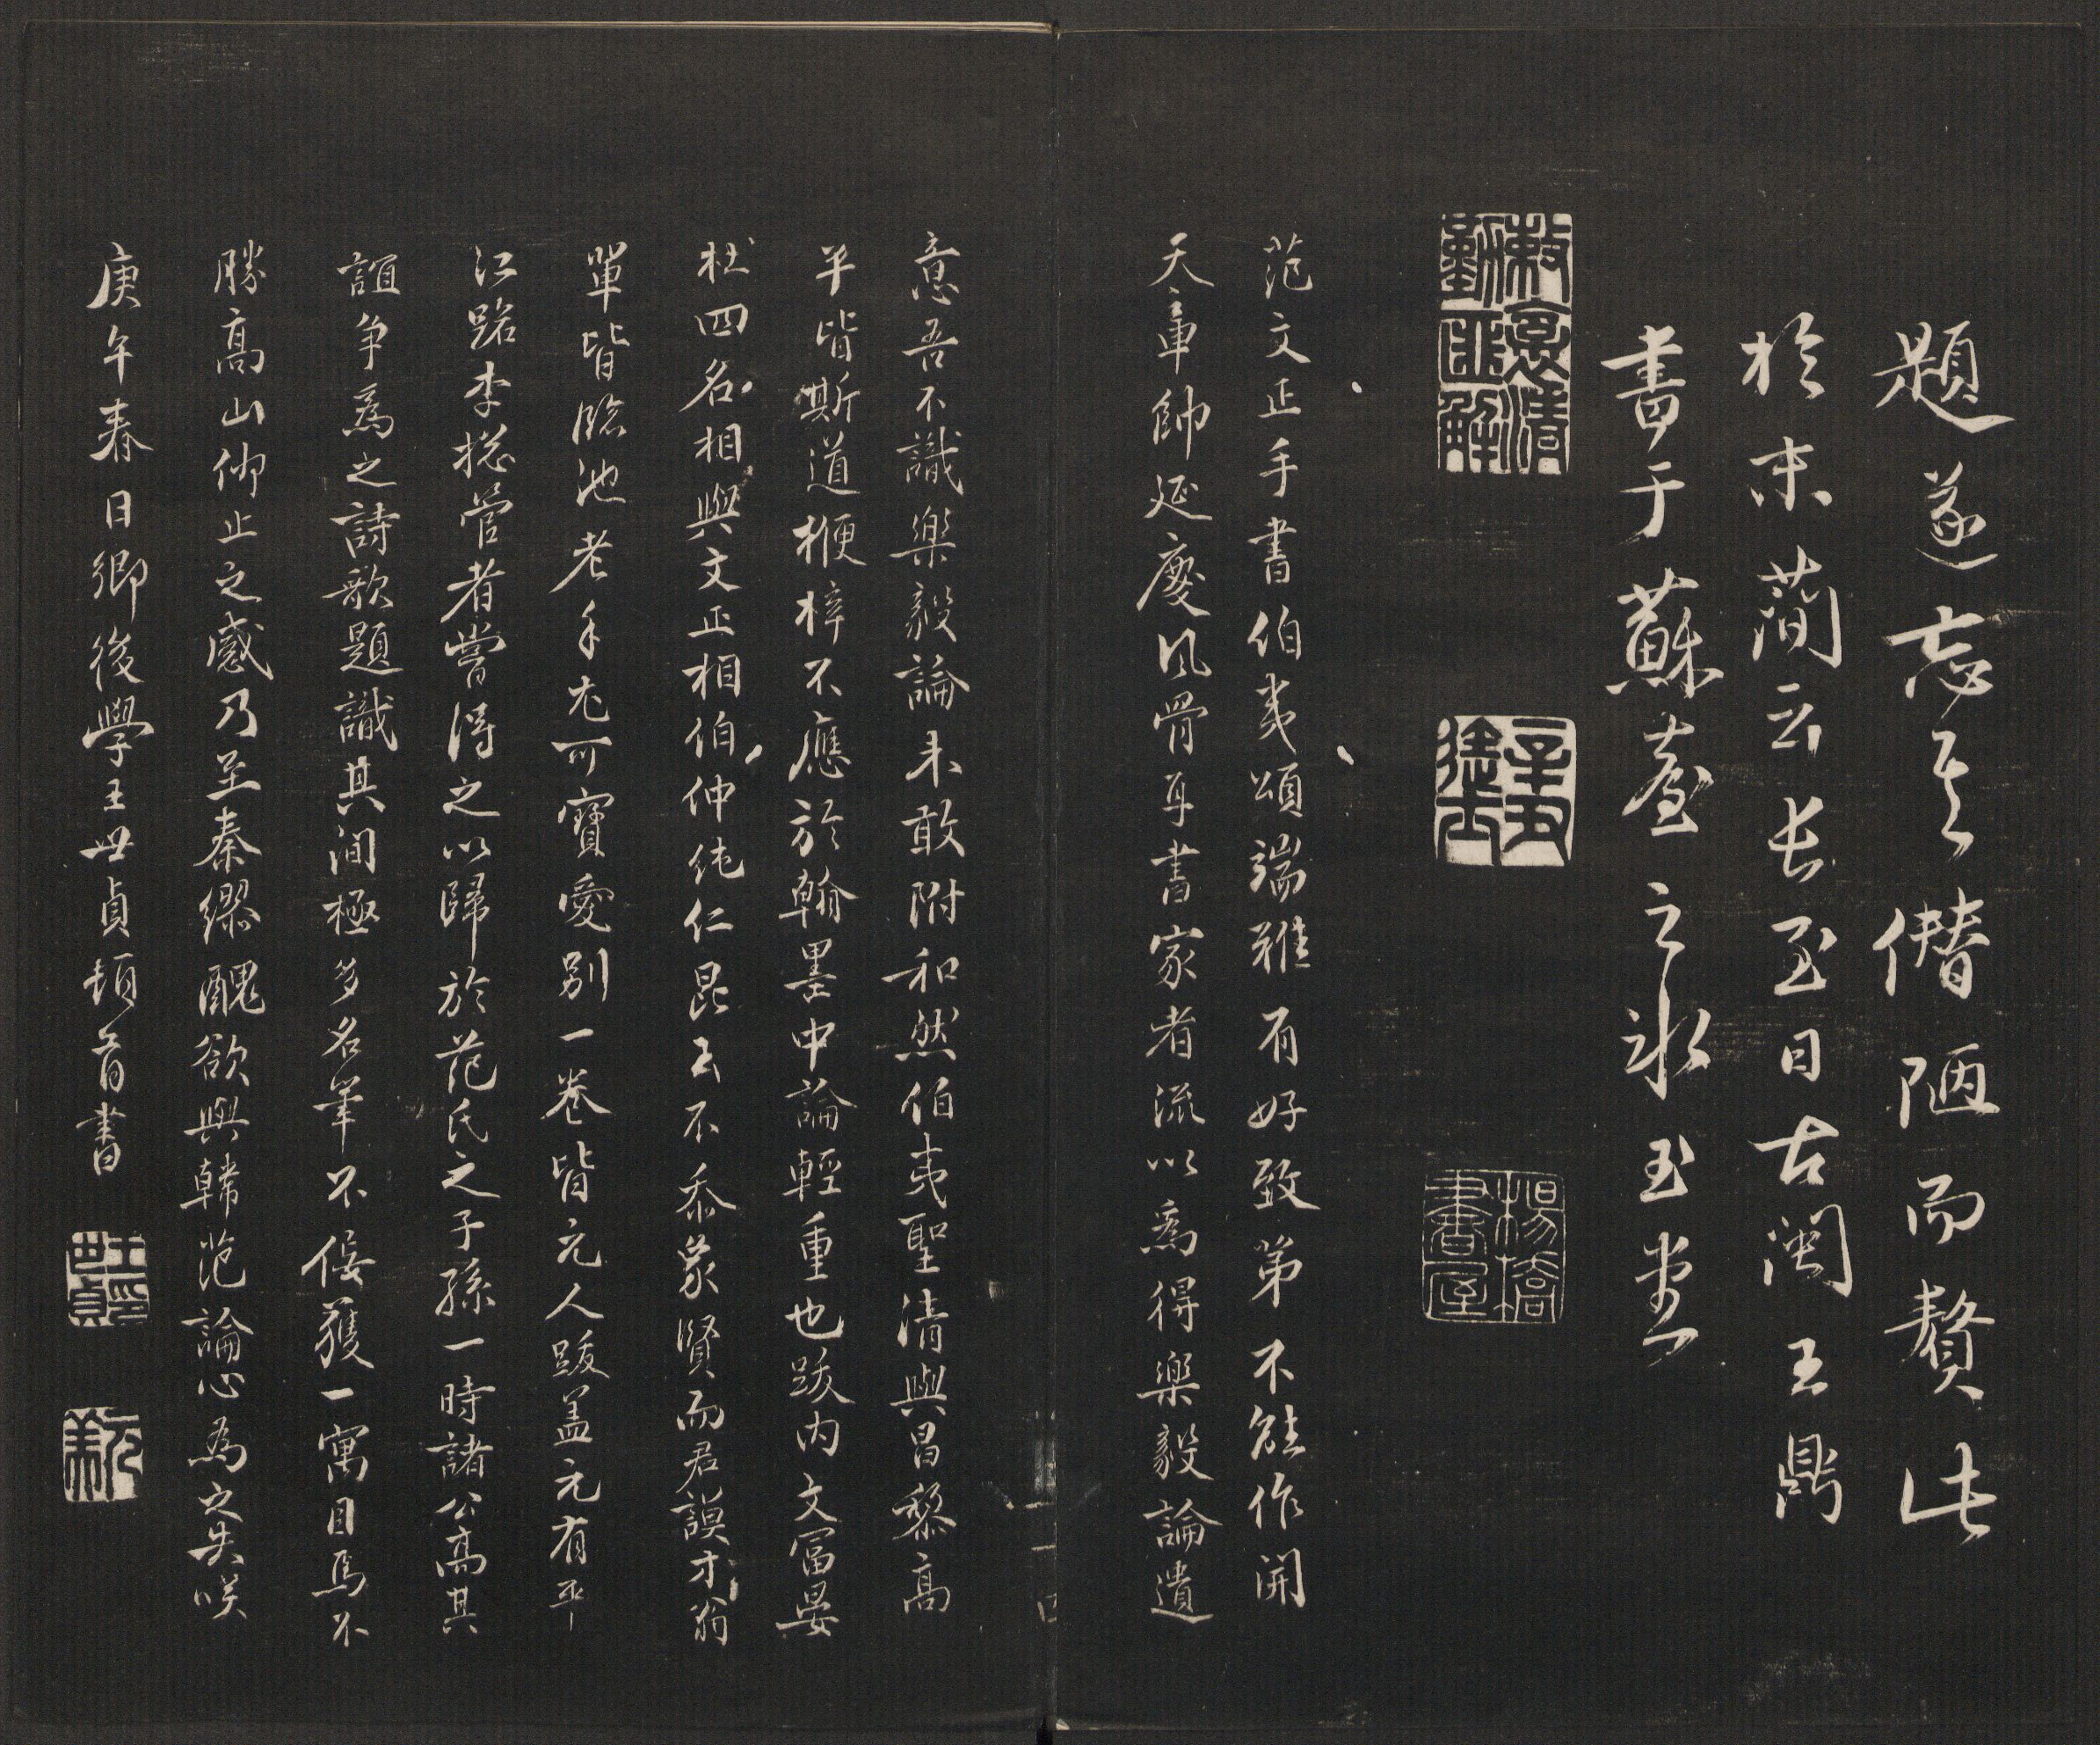 題遂忘其僭陋而贅此
於末簡云長至日古閩王鼎
書于蘇臺之冰玉堂
楊橋書屋
范文正手書伯夷頌端雅有好致第不能作開
天軍帥延慶風骨耳書家者流以為得樂毅論遺
意吾不識樂毅論未敢附和然伯夷聖清與昌黎高
平皆斯道楩梓不應於翰墨中論輕重也跋內文富晏
杜四名相與文正相伯仲純仁昆云不忝象賢而君謨才翁
單皆臨池老手尤可寶愛別一卷皆元人跋蓋元有平
江路李揔管者嘗得之以歸於范氏之子孫一時諸公高其
誼爭為之詩歌題識其間極多名筆不佞獲一寓目焉不
勝高山仰止之感乃至秦繆醜欲與韓范論心為之失咲
庚午春日鄉後學王世貞頓首書